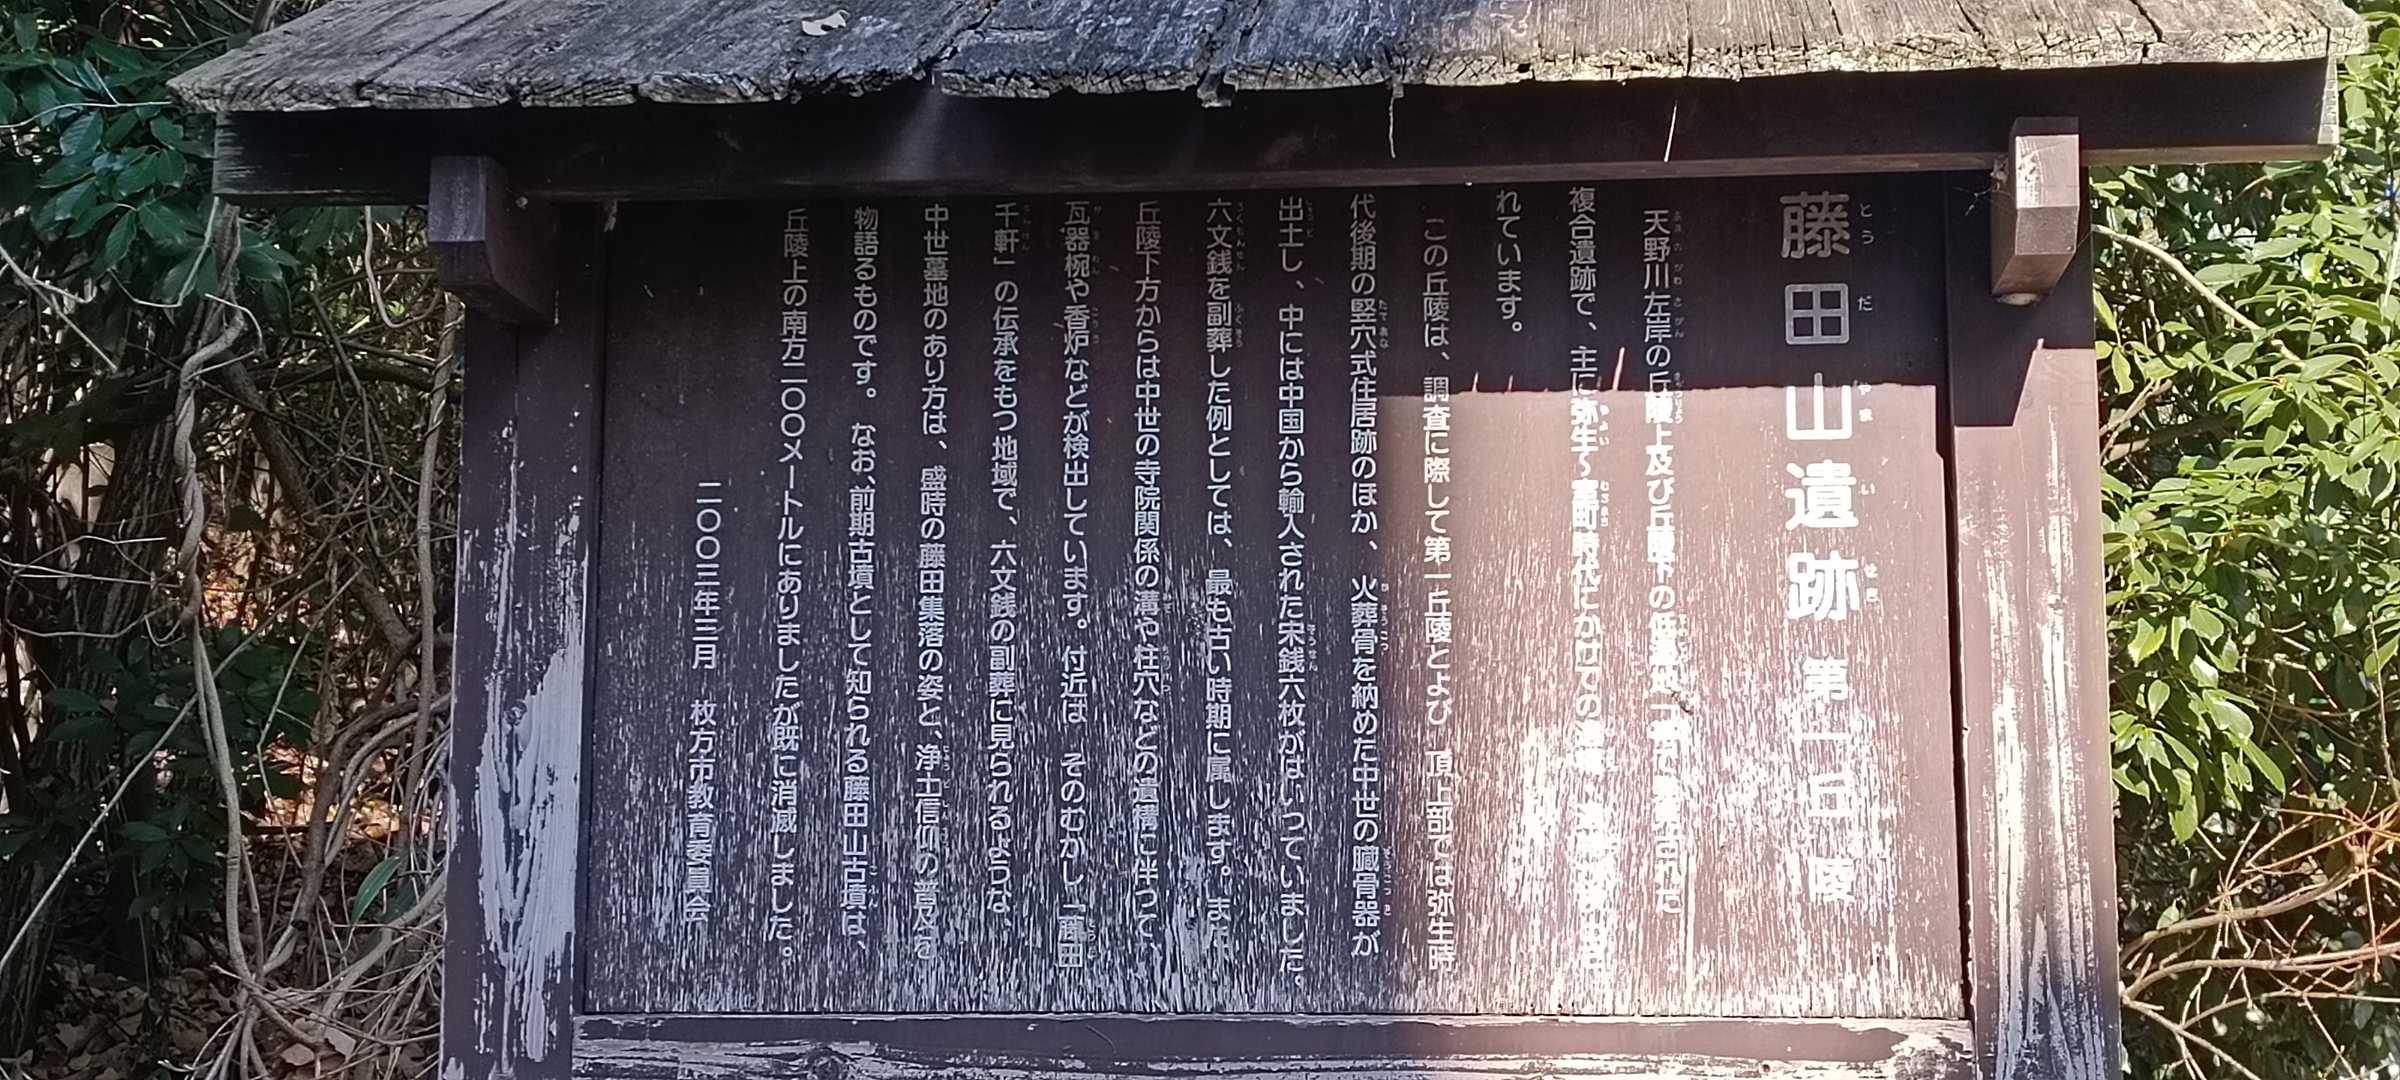 藤田山遺跡 第一丘陵
天野川左岸の丘陵上及び丘陵下の低湿地一帯で発掘された
複合遺跡で、主に弥生～室町時代にかけての遺構・
れています。
この丘陵は、調査に際して第一丘陵とよび 頂上部では弥生時
代後期の竪穴式住居跡のほか、火葬骨を納めた中世の臓骨器が
出土し、中には中国から輸入された宋銭六枚がはいっていました。
六文銭を副葬した例としては、最も古い時期に属します。また、
丘陵下方からは中世の寺院関係の溝や柱穴などの遺構に伴って、
瓦器椀や香炉などが検出しています。付近は そのむかし「藤田
千軒」の伝承をもつ地域で、六文銭の副葬に見られるような、
中世墓地のあり方は、盛時の藤田集落の姿と、浄土信仰の普及を
物語るものです。なお、前期古墳として知られる藤田山古墳は、
丘陵上の南方二〇〇メートルにありましたが既に消滅しました。
二〇〇三年三月 枚方市教育委員会